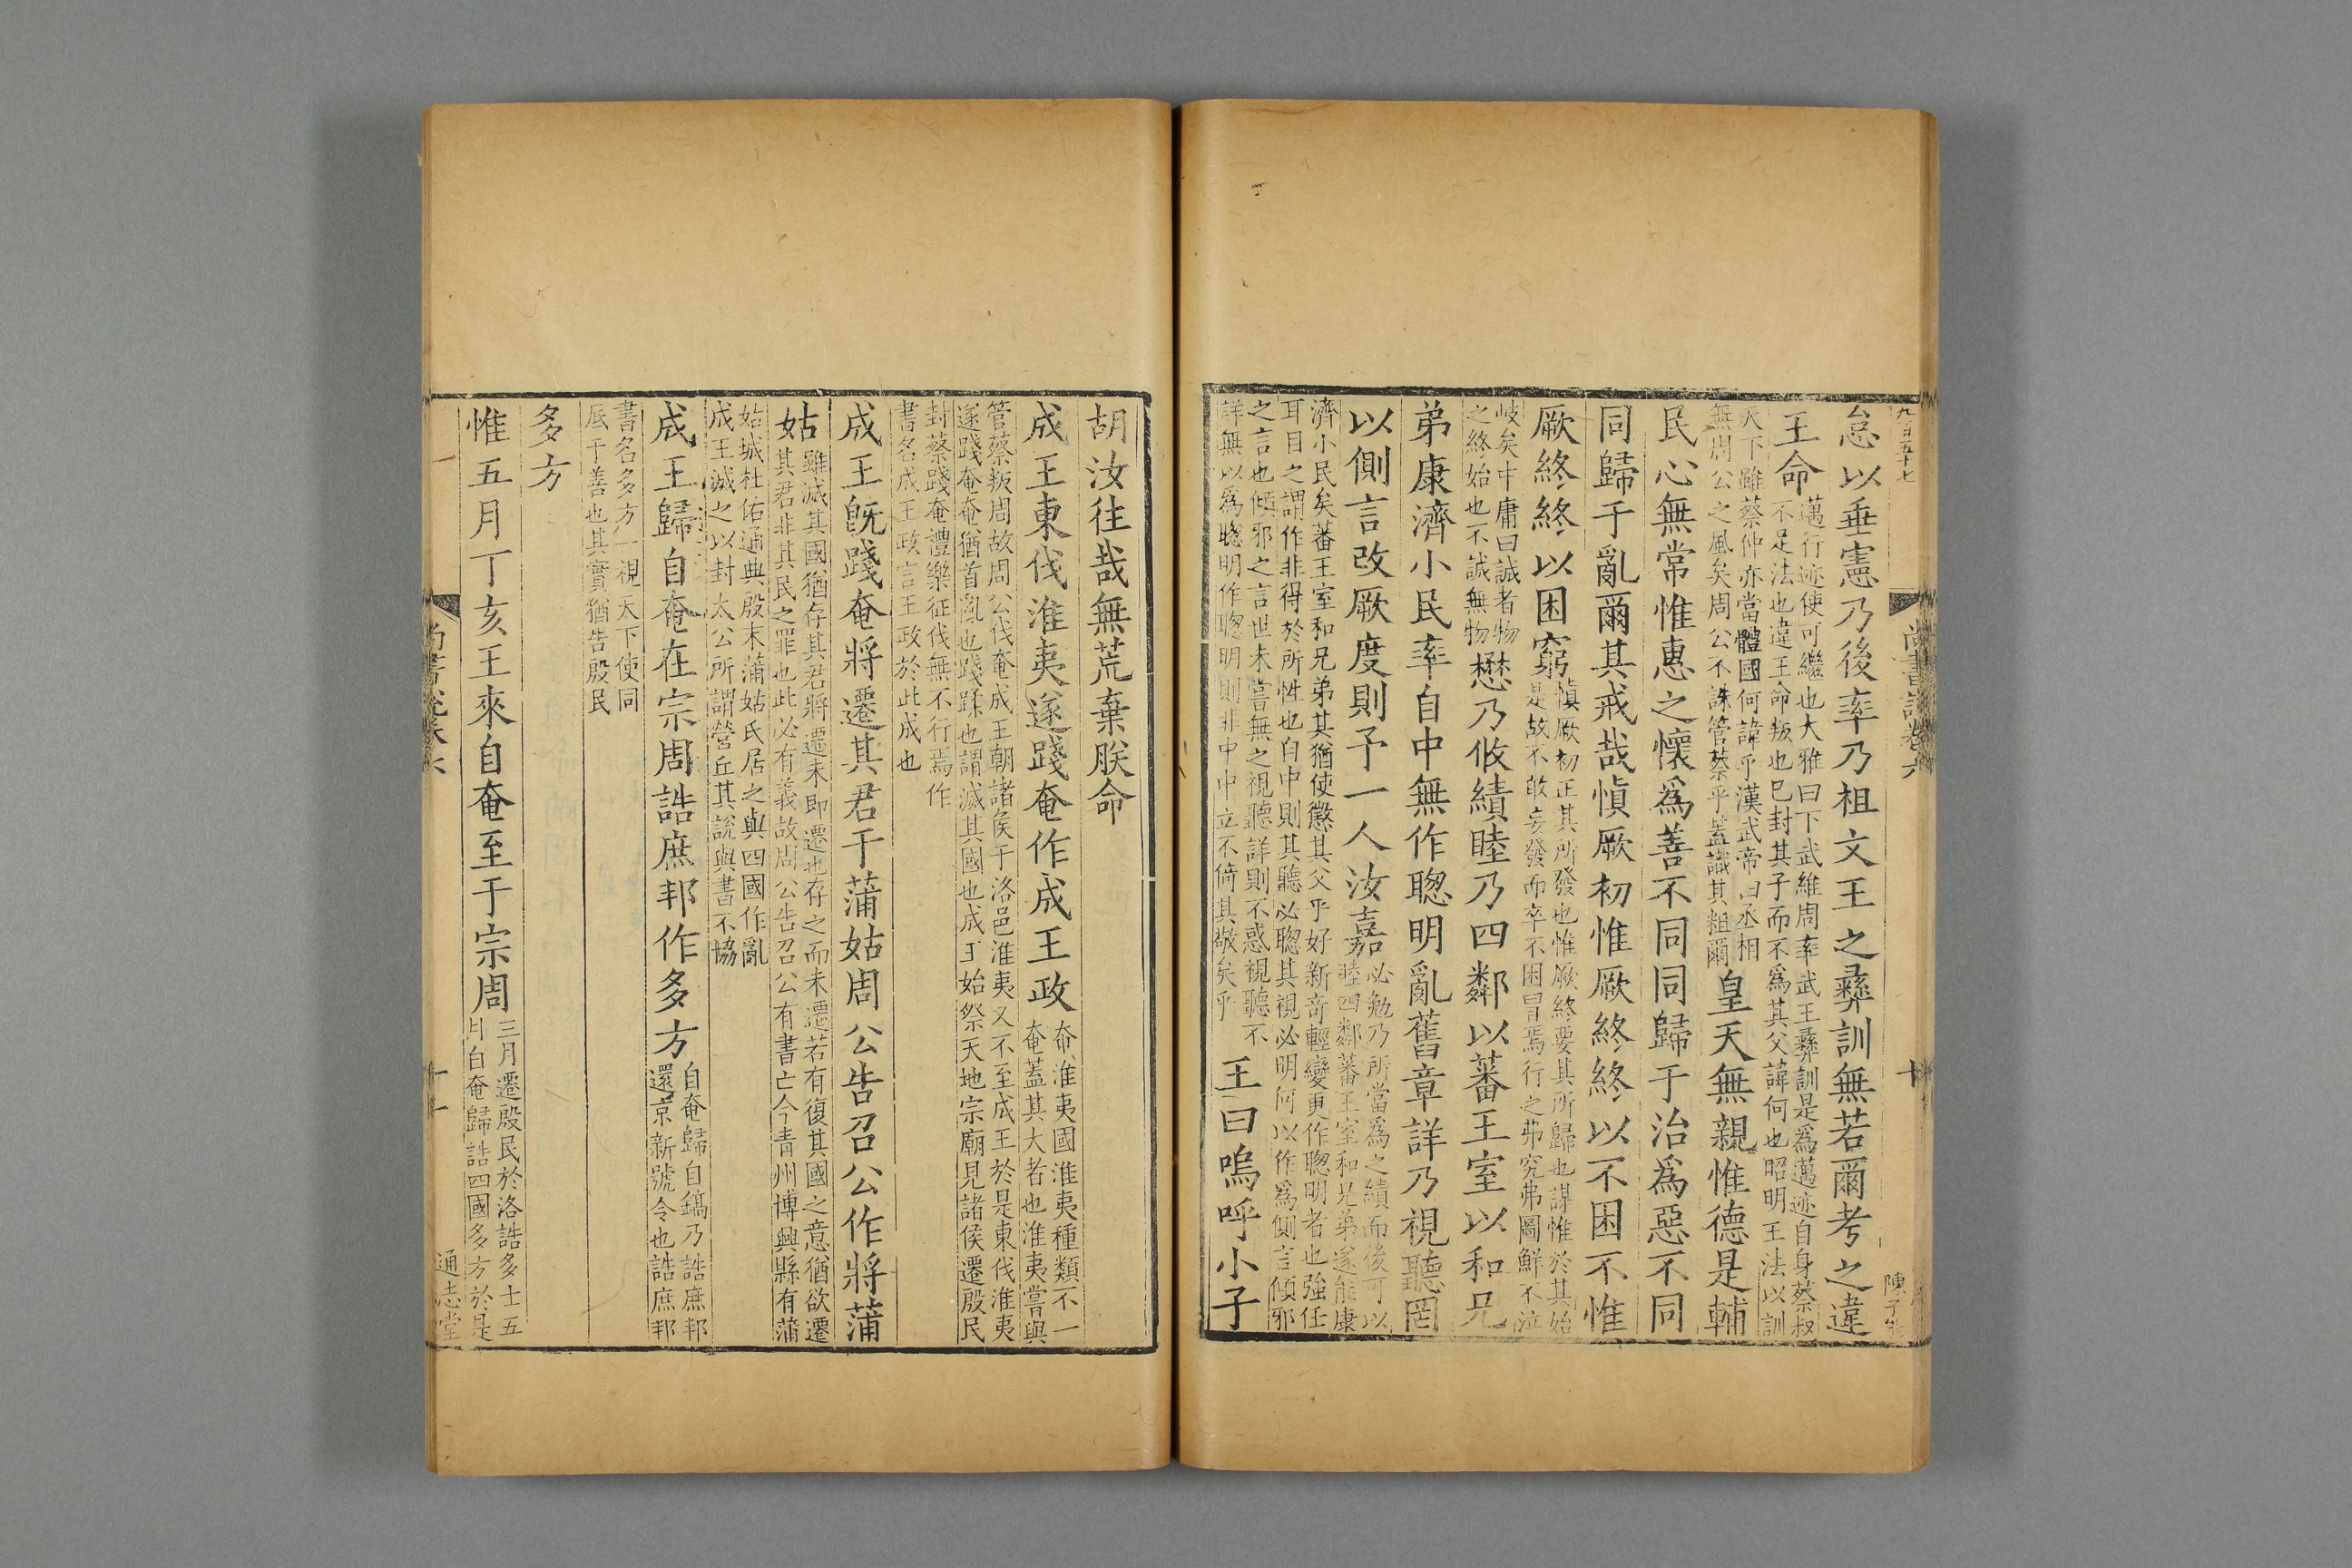 九百五十七
尚書說卷六
十
陳子
怠以垂憲乃後率乃祖文王之彝訓無若爾考之違
王命
邁行迹使可繼也大雅曰下武維周率武王彝訓是爲邁迹自身蔡叔
不足法也違王命叛也已封其子而不爲其父諱何也昭明王法以訓
天下雖蔡仲亦當體國何諱乎漢武帝曰丞相
無周公之風矣周公不誅管蔡乎蓋譏其粗爾
皇天無親惟德是輔
民心無常惟惠之懷爲善不同同歸于治爲惡不同
同歸于亂爾其戒哉愼厥初惟厥終終以不困不惟
厥終終以困窮
愼厥初正其所發也惟厥終要其所歸也謀惟於其始
是故不敢妄發而卒不困冒焉行之弗究弗圖鮮不泣
岐矣中庸曰誠者物
之終始也不誠無物
懋乃攸績睦乃四鄰以蕃王室以和兄
弟康濟小民率自中無作聰明亂舊章詳乃視聽罔
以側言改厥度則予一人汝嘉
必勉乃所當爲之績而後可以
睦四鄰蕃王室和兄弟遂能康
濟小民矣蕃王室和兄弟其猶使懲其父乎好新奇輕變更作聰明者也強任
耳目之謂作非得於所性也自中則其聽必聰其視必明何以作爲側言傾邪
之言也傾邪之言世未嘗無之視聽詳則不惑視聽不
詳無以爲聰明作聰明則非中中立不倚其敬矣乎
王曰嗚呼小子
胡汝往哉無荒棄朕命
成王東伐淮夷遂踐奄作成王政
奄淮夷國淮夷種類不一
奄蓋其大者也淮夷嘗與
管蔡叛周故周公伐奄成王朝諸侯于洛邑淮夷又不至成王於是東伐淮夷
遂踐奄奄猶首亂也踐蹂也謂滅其國也成王始祭天地宗廟見諸侯遷殷民
封蔡踐奄禮樂征伐無不行焉作
書名成王政言王政於此成也
成王旣踐奄將遷其君于蒲姑周公告召公作將蒲
姑
雖滅其國猶存其君將遷未即遷也存之而未遷若有復其國之意猶欲遷
其君非其民之罪也此必有義故周公告召公有書亡今青州博興縣有蒲
姑城杜佑通典殷末蒲姑氏居之與四國作亂
成王滅之以封太公所謂營丘其說與書不協
成王歸自奄在宗周誥庶邦作多方
自奄歸自鎬乃誥庶邦
還京新號令也誥庶邦
書名多方一視天下使同
底于善也其實猶告殷民
多方
惟五月丁亥王來自奄至于宗周
三月遷殷民於洛誥多士五
月自奄歸誥四國多方於是
尚書說卷六
十一
通志堂